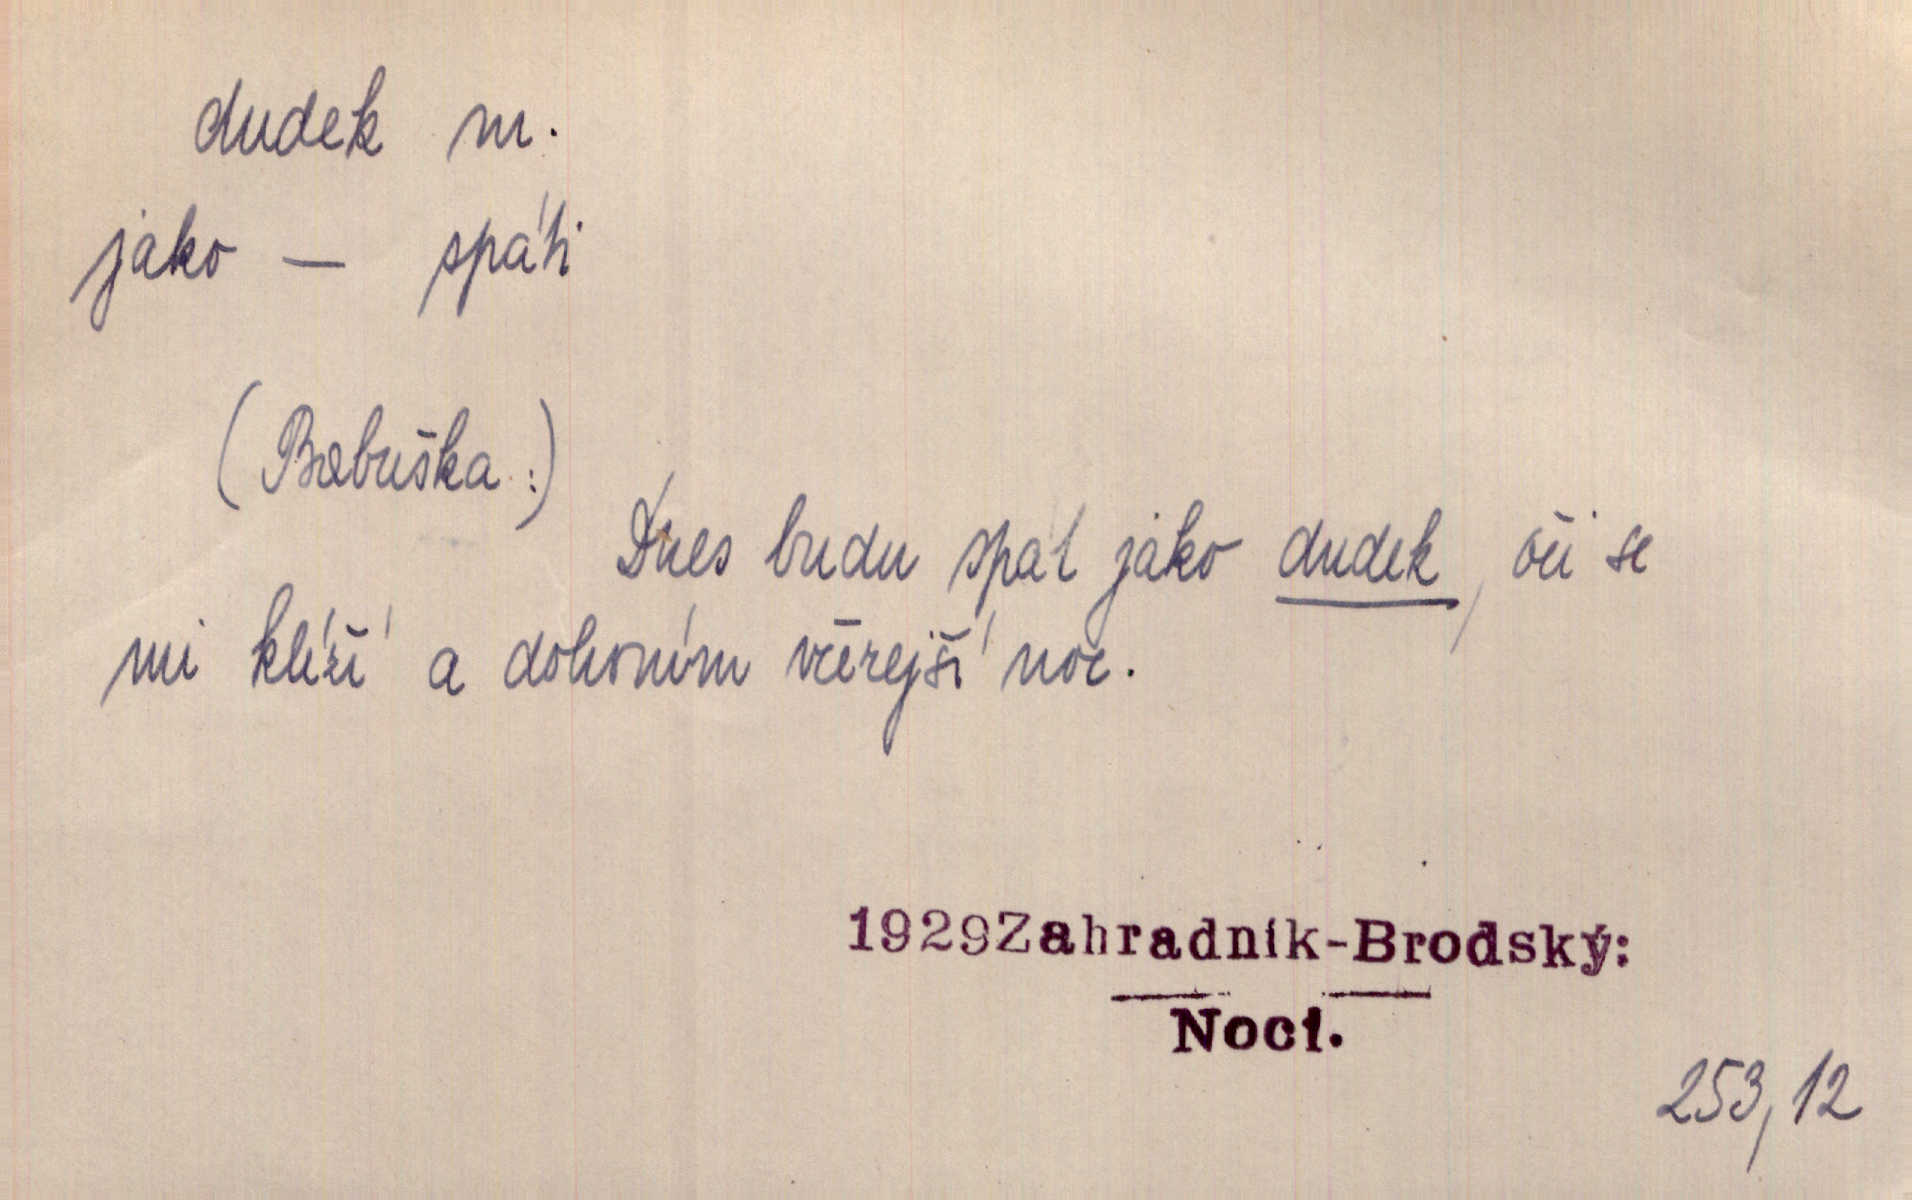 dudek m.
jako — spáti
(Babuška:)
Dnes budu spát jako dudek, oči se
mi klíží a dohoním včerejší noc.
1929Zahradník-Brodský:
Noci.
253,12